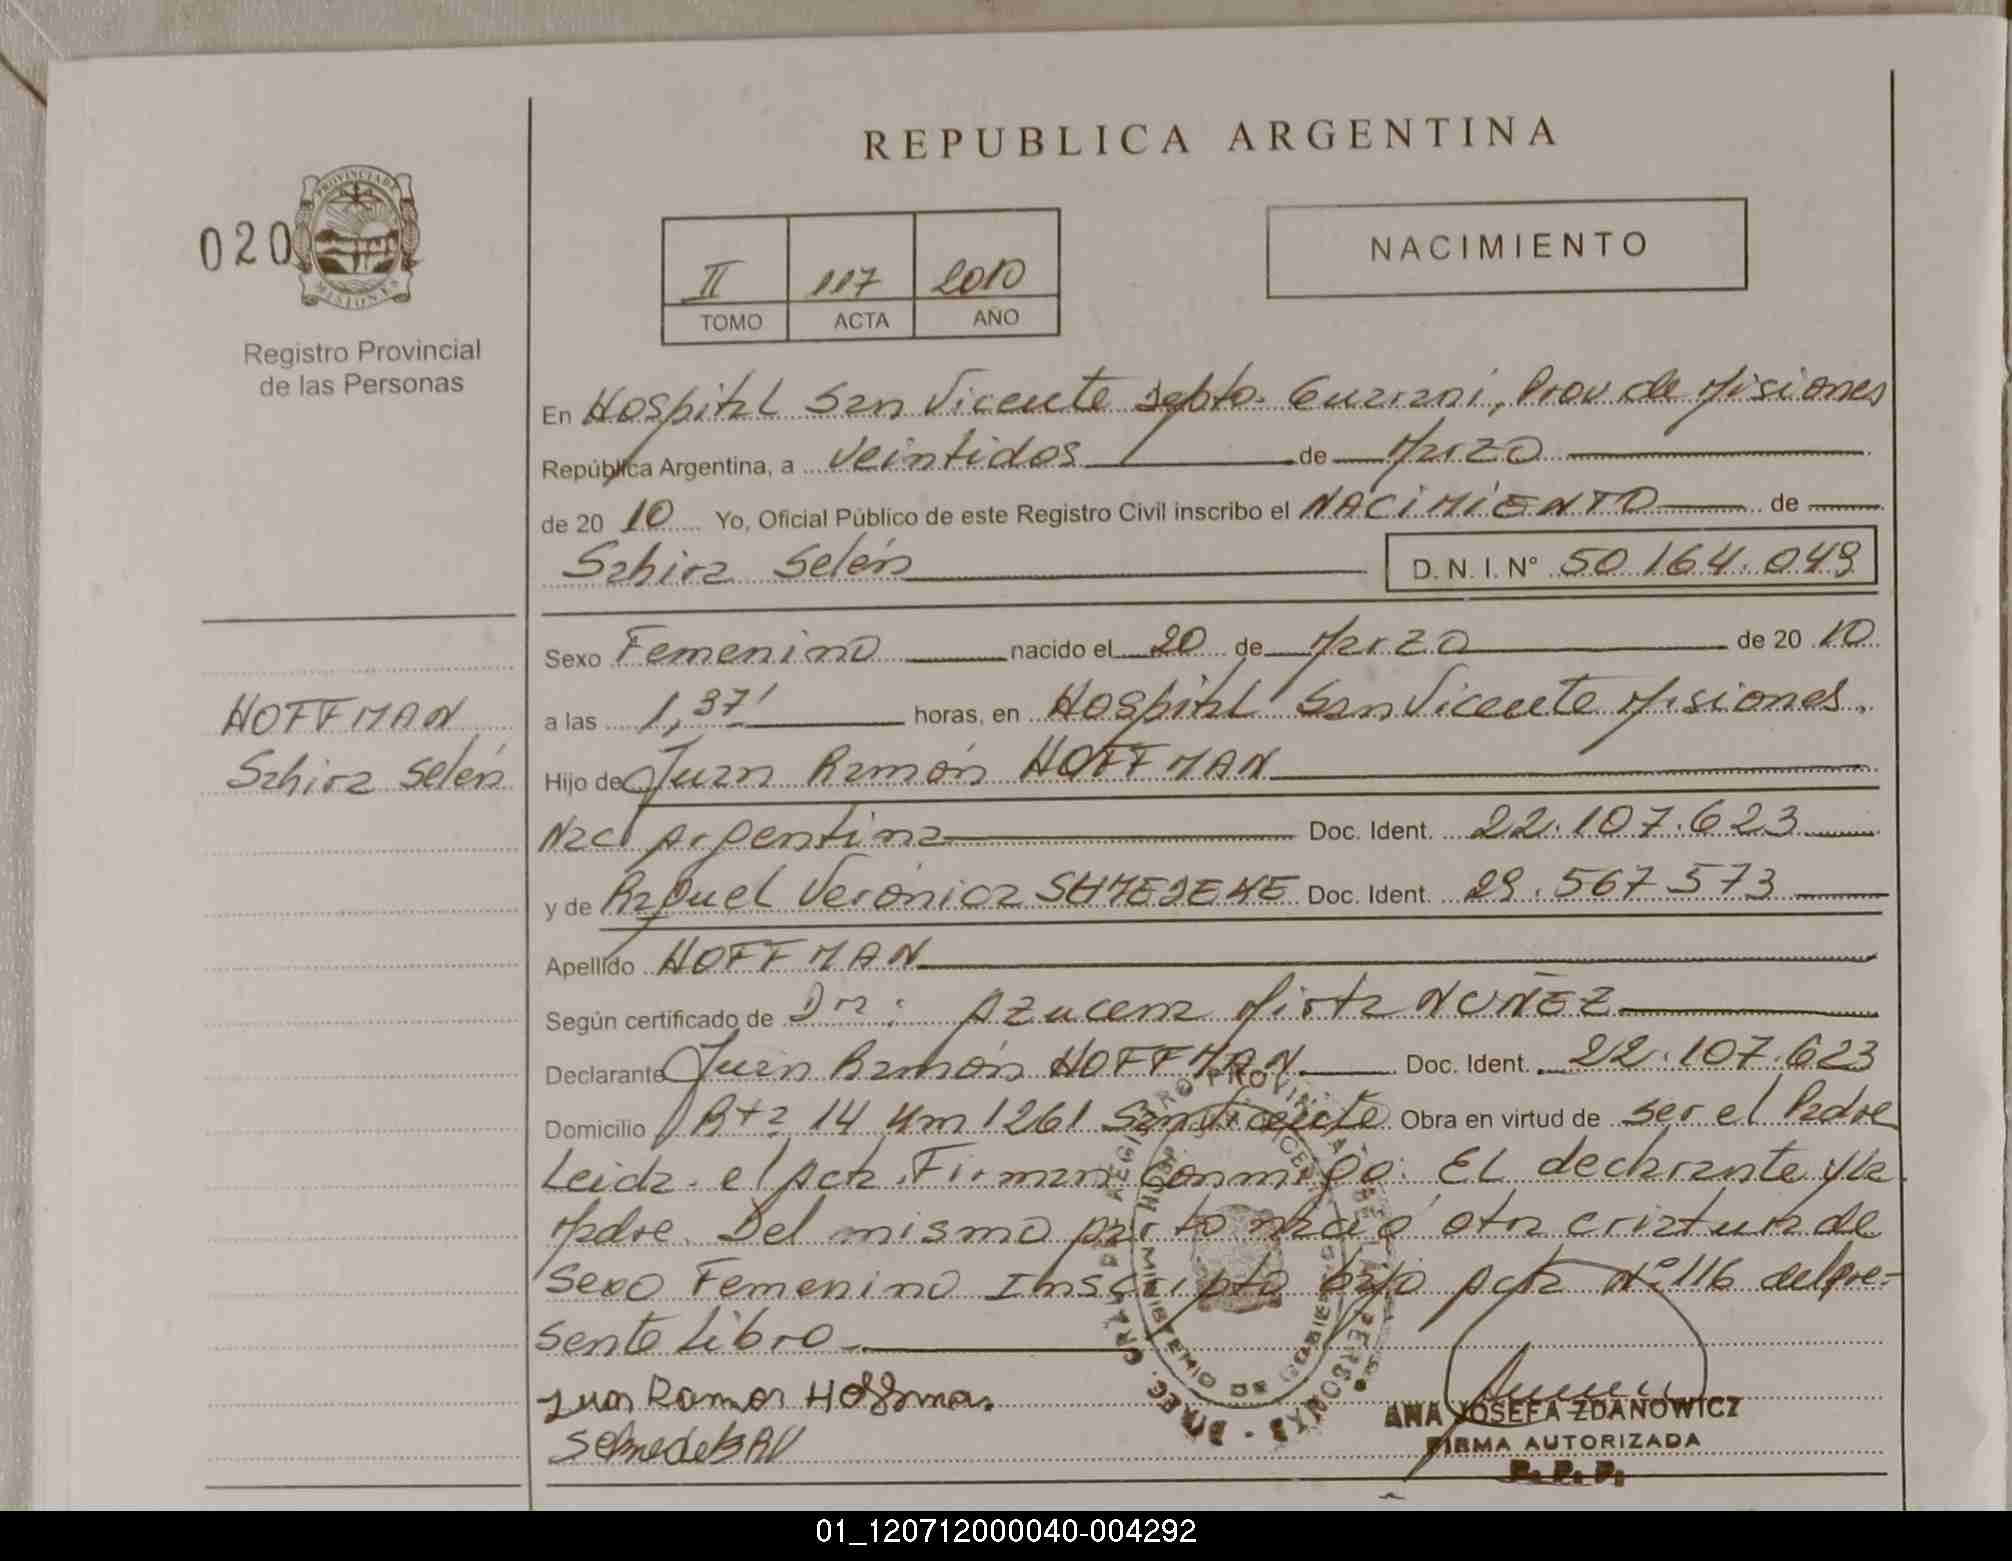 REPUBLICA ARGENTINA
020
PROVINCIA DE
MISIONES
Registro Provincial
de las Personas
II 117 2010
TOMO ACTA AÑO
NACIMIENTO
En Hospital San Vicente Depto. Guaraní, Prov de Misiones
República Argentina, a veintidos de Marzo
de 20 10 Yo, Oficial Público de este Registro Civil inscribo el NACIMIENTO de
Sahira Selén D.N.I. N° 50 164.049
Sexo Femenino nacido el 20 de Marzo de 20 10
HOFFMAN
Sahira Selén
a las 1,37' horas, en Hospital San Vicente Misiones.
Hijo de Juan Ramón HOFFMAN
Nac Argentina Doc. Ident. 22.107.623
y de Raquel Verónica Doc. Ident. 29.567 573
Apellido HOFFMAN
Según certificado de Dra: Azucena Mirta NUÑEZ
Declarante Juan Ramón HOFFMAN Doc. Ident. 22.107.623
Domicilio Rta 14 Km 1261 San Vicente Obra en virtud de ser el Padre
Leida el Acta Firman Conmigo: El declarante y la
Madre. Del mismo parto nació otra criatura de
Sexo Femenino Inscripto bajo Acta N° 116 del pre-
sente Libro
Juan Ramon Hoffman
ANA JOSEFA ZDANOWICZ
FIRMA AUTORIZADA
R.P.P.
01_120712000040-004292